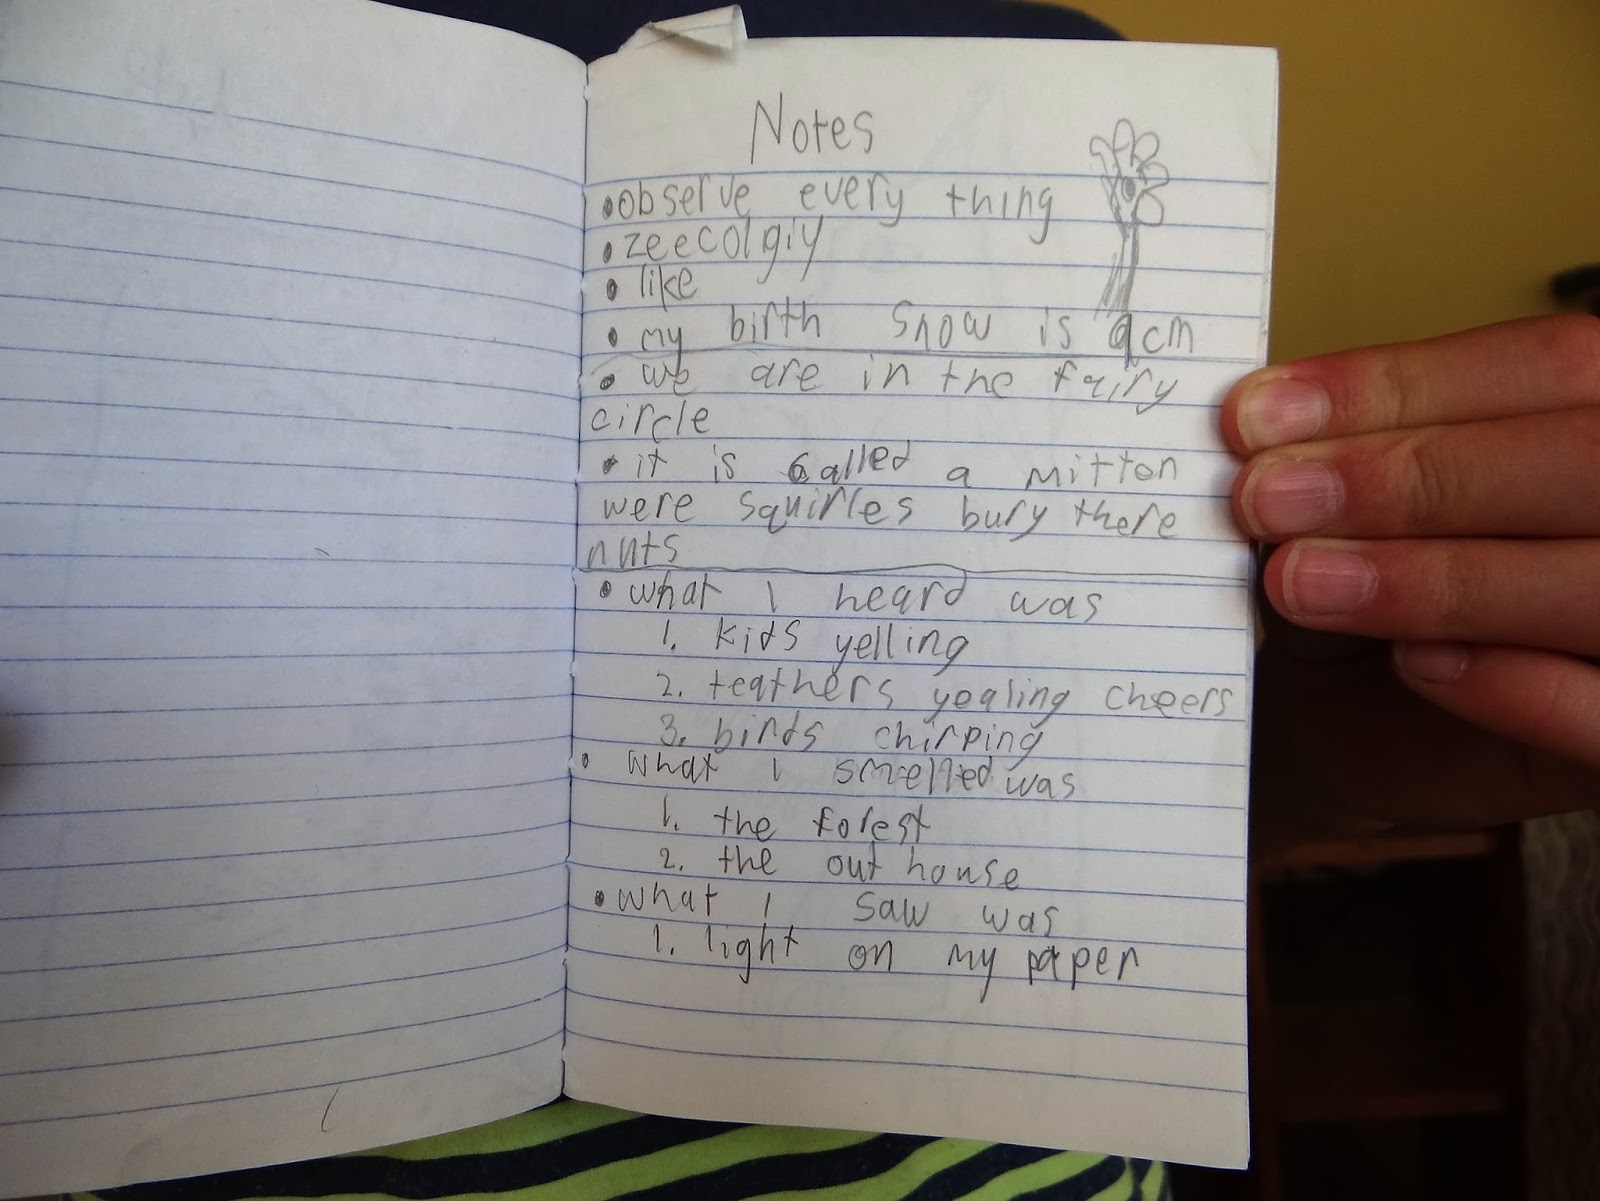 Notes
•observe every thing
•zeecolgiy
• like
• my birth snow is 9cm
• we are in the fairy
circle
• it is called a mitton
were squirles bury there
nuts
• what I heard was
1. kids yelling
2. teathers yealing cheers
3. birds chirping
• what I smelled was
1. the forest
2. the out house
• what I saw was
1. light on my paper